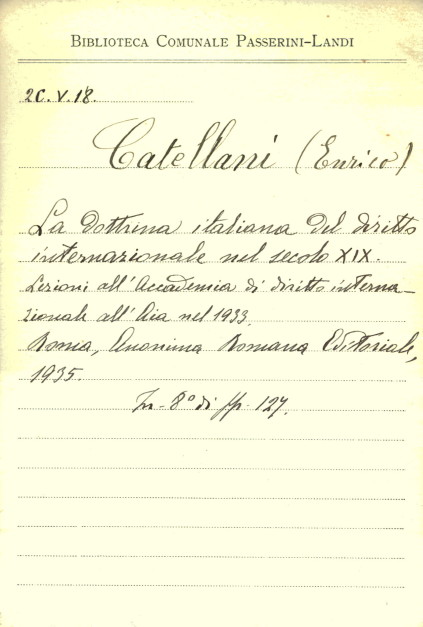 BIBLIOTECA COMUNALE PASSERINI-LANDI
2C.V.18.
Catellani (Enrico)
La dottrina italiana del diritto
internazionale nel secolo XIX.
Lezioni all'Accademia di diritto interna-
zionale all'Aia nel 1933.
Roma, Anonima Romana Editoriale,
1935.
In-8° di pp. 127.